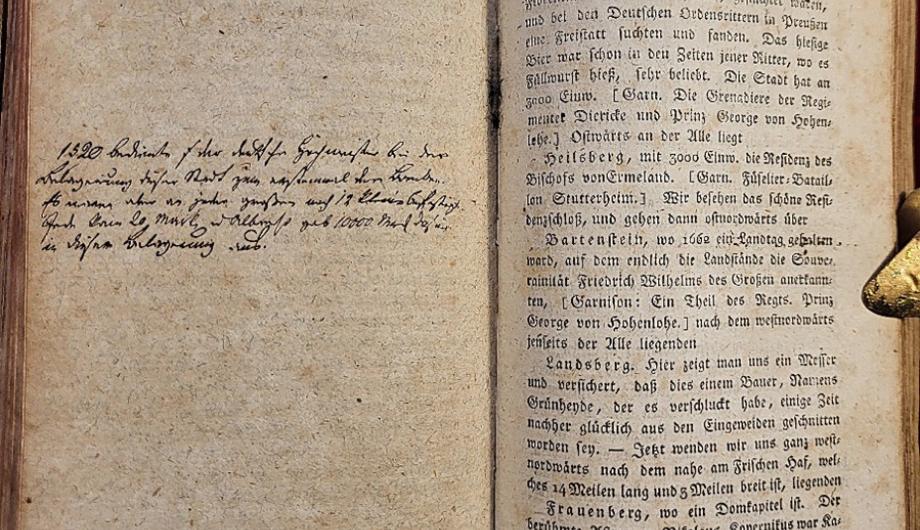 1520 bediente sich der deutsche Hochmeister bei der
Belagerung dieser Stadt zum erstenmal der Bomben.
es waren aber nur große und 12 kleine
Jede kam 20 Mark, Albrecht gab 10000 Mark
in dieser Belagerung aus.
und bei den Deutschen Ordensrittern in Preußen
eine Freistatt suchten und fanden. Das hiesige
Bier war schon in den Zeiten jener Ritter, wo es
Füllwurst hieß, sehr beliebt. Die Stadt hat an
3000 Einw. [Garn. Die Grenadiere der Regi-
menter Diericke und Prinz George von Hohen-
lohe.] Ostwärts an der Alle liegt
Heilsberg, mit 3000 Einw. die Residenz des
Bischofs von Ermeland. [Garn. Füselier-Batail-
lon Stutterheim.] Wir besehen das schöne Resi-
denzschloß, und gehen dann ostnordwärts über
Bartenstein, wo 1662 ein Landtag gehalten
ward, auf dem endlich die Landstände die Souve-
rainität Friedrich Wilhelms des Großen anerkann-
ten, [Garnison: Ein Theil des Regts. Prinz
George von Hohenlohe.] nach dem westnordwärts
jenseits der Alle liegenden
Landsberg. Hier zeigt man uns ein Messer
und versichert, daß dies einem Bauer, Namens
Grünheyde, der es verschluckt habe, einige Zeit
nachher glücklich aus den Eingeweiden geschnitten
worden sey. — Jetzt wenden wir uns ganz west-
nordwärts nach dem nahe am Frischen Haf, wel-
ches 14 Meilen lang und 3 Meilen breit ist, liegenden
Frauenberg, wo ein Domkapitel ist. Der
berühmte Nikolaus Kopernikus war Ka-